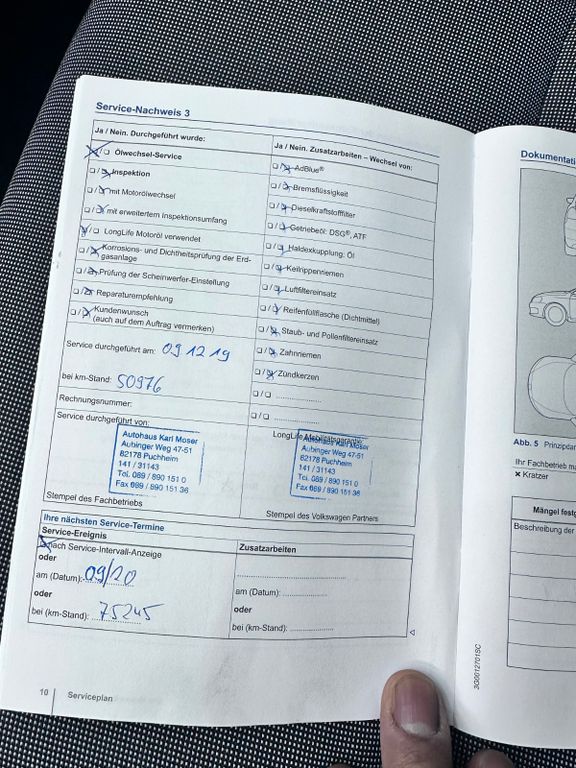 Service-Nachweis 3
Ja / Nein. Durchgeführt wurde:
☒/☐ Ölwechsel-Service
☐/☒ Inspektion
☐/☒ mit Motorölwechsel
☐/☒ mit erweitertem Inspektionsumfang
☒/☐ LongLife Motoröl verwendet
☐/☒ Korrosions- und Dichtheitsprüfung der Erd-
gasanlage
☐/☒ Prüfung der Scheinwerfer-Einstellung
☐/☒ Reparaturempfehlung
☐/☒ Kundenwunsch
(auch auf dem Auftrag vermerken)
Service durchgeführt am: 09 12 19
bei km-Stand: 50976
Rechnungsnummer:
Service durchgeführt von:
Autohaus Karl Moser
Aubinger Weg 47-51
82178 Puchheim
141 / 31143
Tel. 089 / 890 151 0
Fax 089 / 890 151 36
Stempel des Fachbetriebs
Ja / Nein. Zusatzarbeiten – Wechsel von:
☐/☒ AdBlue®
☐/☒ Bremsflüssigkeit
☐/☒ Dieselkraftstofffilter
☐/☒ Getriebeöl: DSG®, ATF
☐/☒ Haldexkupplung: Öl
☐/☒ Keilrippenriemen
☐/☒ Luftfiltereinsatz
☐/☒ Reifenfüllflasche (Dichtmittel)
☐/☒ Staub- und Pollenfiltereinsatz
☐/☒ Zahnriemen
☐/☒ Zündkerzen
☐/☐ ....................
☐/☐ ....................
LongLife Mobilitätsgarantie:
Autohaus Karl Moser
Aubinger Weg 47-51
82178 Puchheim
141 / 31143
Tel. 089 / 890 151 0
Fax 089 / 890 151 36
Stempel des Volkswagen Partners
Ihre nächsten Service-Termine
Service-Ereignis
☒ nach Service-Intervall-Anzeige
oder
am (Datum): 09/20
oder
bei (km-Stand): 75245
Zusatzarbeiten
....................
am (Datum): ....................
oder
bei (km-Stand): ....................
10 Serviceplan
3G0012701SC
Abb. 5 Prinzipdar
Ihr Fachbetrieb
✖ Kratzer
Beschreibung der